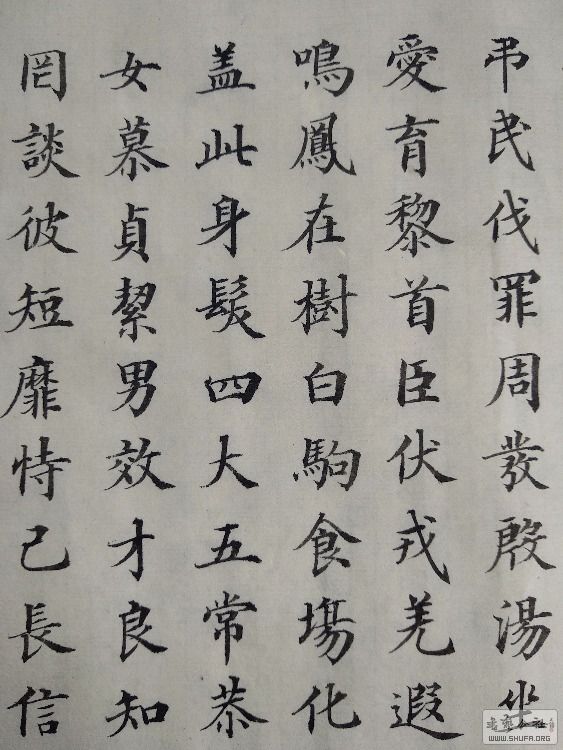 吊民伐罪周發殷湯坐
愛育黎首臣伏戎羌遐
鳴鳳在樹白駒食塲化
盖此身髮四大五常恭
女慕貞絜男效才良知
罔談彼短靡恃己長信
WWW.SHUFA.ORG